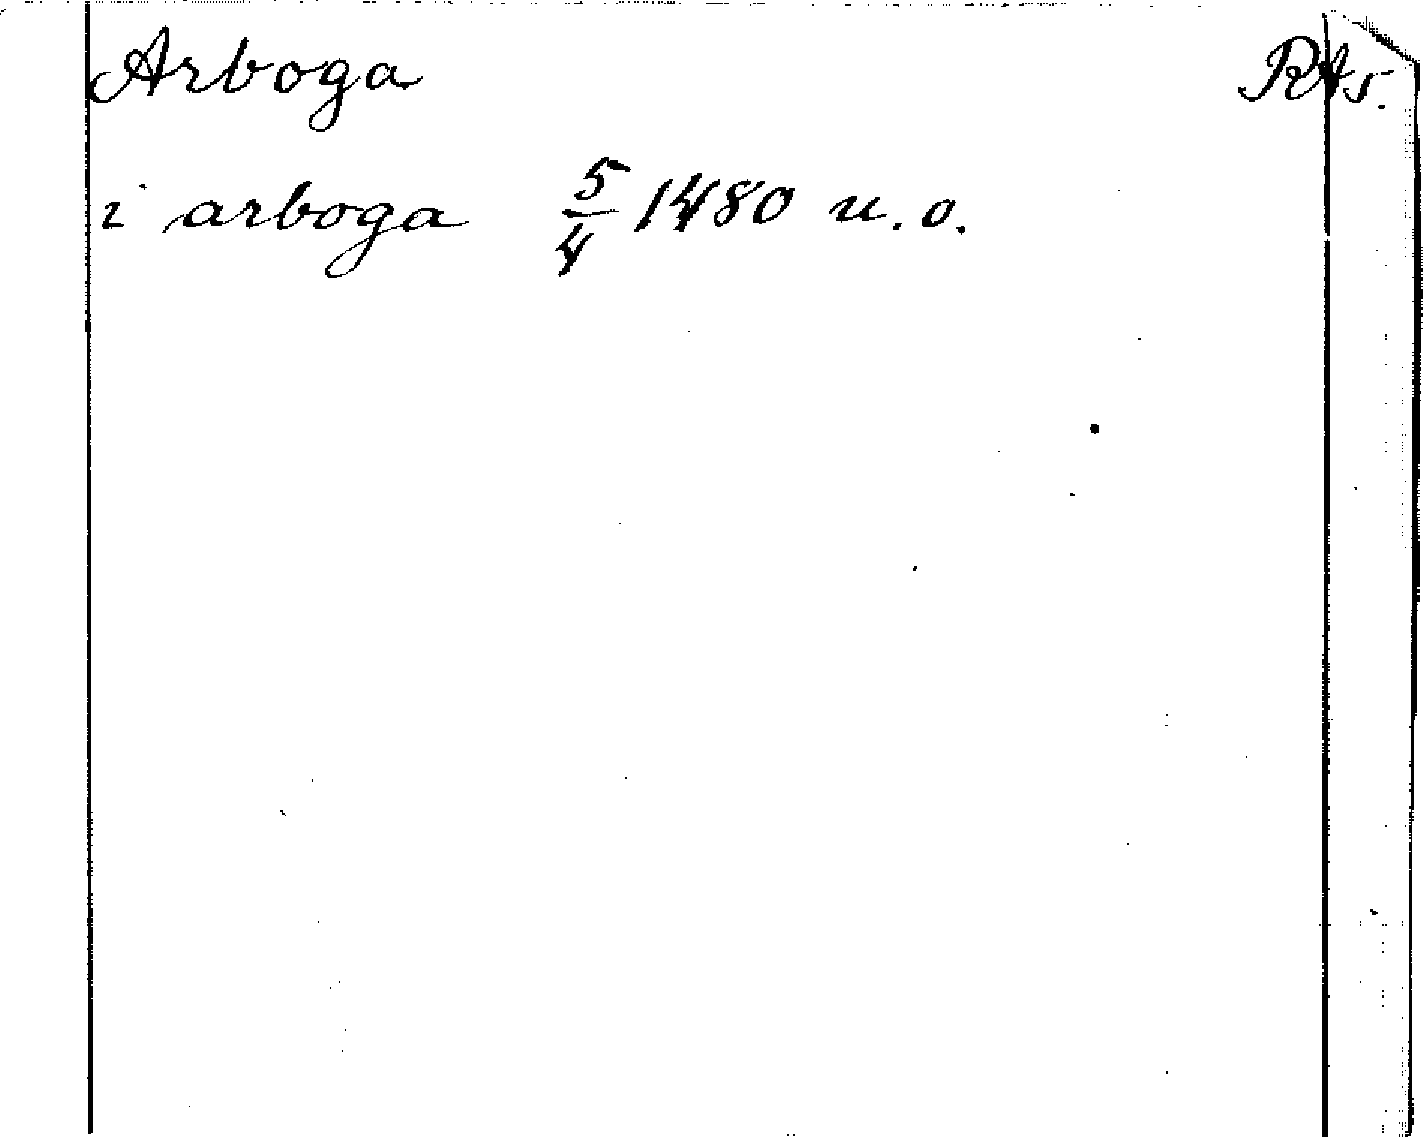 Arboga RAs.
i arboga 5/4 1480 u. o.